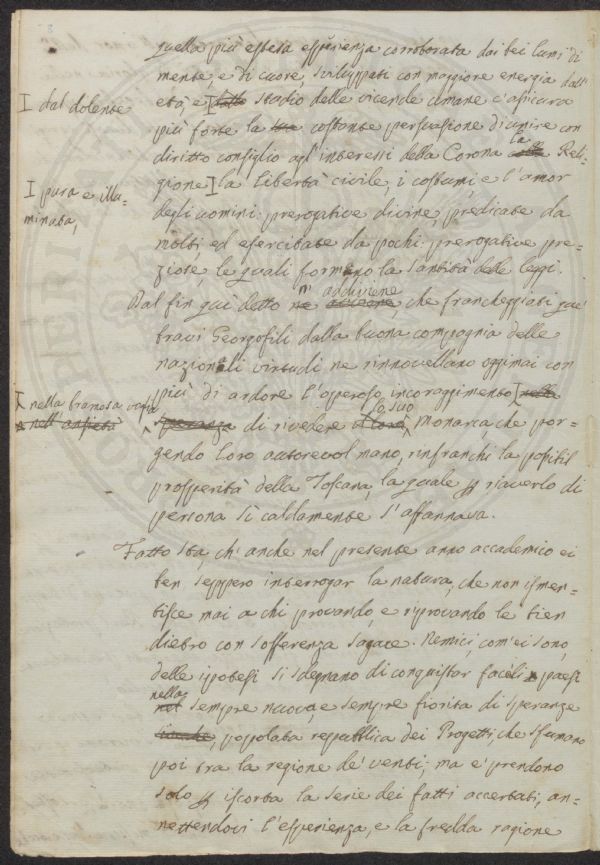 quella più estesa esperienza corroborata dai bei lumi di
mente, e di cuore, sviluppati con maggiore energia dall'
I dal dolente
età, e I tutto stadio delle vicende umane c'assicura
più forte la sua costante persuasione d'unire con
diritto consiglio agl'interessi della Corona la Reli-
I pura e illu-
minata,
gione I la libertà civile, i costumi, e l'amor
degli uomini: prerogative divine, predicate da
molti, ed esercitate da pochi: prerogative pre-
ziose, le quali formano la santità delle leggi.
Dal fin quì detto n'addiviene, che francheggiati que'
bravi Georgofili dalla buona compagnia delle
nazionali virtudi ne rinnovellano oggimai con
più di ardore l'operoso incoraggimento I nella
nella bramosa voglia
nell'ansietà
speranza di rivedere lo suo Monarca, che por-
gendo loro autorevol mano, rinfranchi la possibil
prosperità della Toscana, la quale p riaverlo di
persona sì caldamente s'affannava.
Fatto sta, ch'anche nel presente anno accademico ei
ben seppero interrogar la natura, che non ismen-
tisce mai a chi provando, e riprovando le tien
dietro con sofferenza sagace. Nemici, com'ei sono,
delle ipotesi si sdegnano di conquistar facili paesi
nella
nel sempre nuova, e sempre fiorita di speranze
popolata repubblica dei Progetti, che sfumano
poi tra la regione de' venti; ma e' prendono
solo p iscorta la serie dei fatti accertati, an-
nettendovi l'esperienza, e la fredda ragione